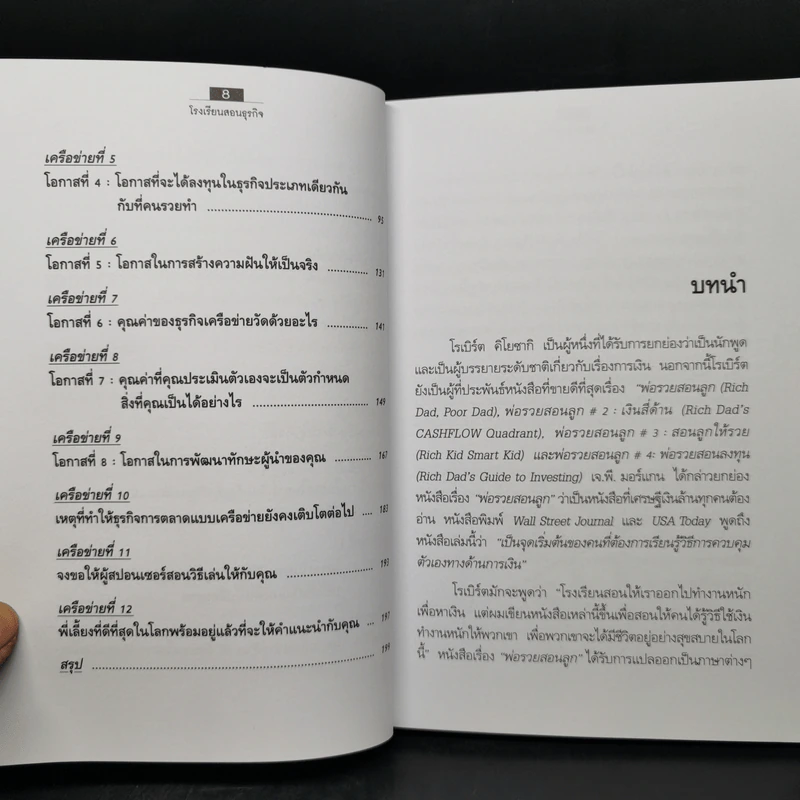 8
โรงเรียนสอนธุรกิจ
เครือข่ายที่ 5
โอกาสที่ 4 : โอกาสที่จะได้ลงทุนในธุรกิจประเภทเดียวกัน
กับที่คนรวยทำ ........................................ 95
เครือข่ายที่ 6
โอกาสที่ 5 : โอกาสในการสร้างความฝันให้เป็นจริง ............... 131
เครือข่ายที่ 7
โอกาสที่ 6 : คุณค่าของธุรกิจเครือข่ายวัดด้วยอะไร ............... 141
เครือข่ายที่ 8
โอกาสที่ 7 : คุณค่าที่คุณประเมินตัวเองจะเป็นตัวกำหนด
สิ่งที่คุณเป็นได้อย่างไร ............................... 149
เครือข่ายที่ 9
โอกาสที่ 8 : โอกาสในการพัฒนาทักษะผู้นำของคุณ ............... 167
เครือข่ายที่ 10
เหตุที่ทำให้ธุรกิจการตลาดแบบเครือข่ายยังคงเติบโตต่อไป ...... 183
เครือข่ายที่ 11
จงขอให้ผู้สปอนเซอร์สอนวิธีเล่นให้กับคุณ ......................... 193
เครือข่ายที่ 12
พี่เลี้ยงที่ดีที่สุดในโลกพร้อมอยู่แล้วที่จะให้คำแนะนำกับคุณ ... 197
สรุป ................................................................. 199
บทนำ
โรเบิร์ต คิโยซากิ เป็นผู้หนึ่งที่ได้รับการยกย่องว่าเป็นนักพูด
และเป็นผู้บรรยายระดับชาติเกี่ยวกับเรื่องการเงิน นอกจากนี้โรเบิร์ต
ยังเป็นผู้ที่ประพันธ์หนังสือที่ขายดีที่สุดเรื่อง "พ่อรวยสอนลูก (Rich
Dad, Poor Dad), พ่อรวยสอนลูก # 2 : เงินสี่ด้าน (Rich Dad's
CASHFLOW Quadrant), พ่อรวยสอนลูก # 3 : สอนลูกให้รวย
(Rich Kid Smart Kid) และพ่อรวยสอนลูก # 4: พ่อรวยสอนลงทุน
(Rich Dad's Guide to Investing) เจ.พี. มอร์แกน ได้กล่าวยกย่อง
หนังสือเรื่อง "พ่อรวยสอนลูก" ว่าเป็นหนังสือที่เศรษฐีเงินล้านทุกคนต้อง
อ่าน หนังสือพิมพ์ Wall Street Journal และ USA Today พูดถึง
หนังสือเล่มนี้ว่า "เป็นจุดเริ่มต้นของคนที่ต้องการเรียนรู้วิธีการควบคุม
ตัวเองทางด้านการเงิน"
โรเบิร์ตมักจะพูดว่า "โรงเรียนสอนให้เราออกไปทำงานหนัก
เพื่อหาเงิน แต่ผมเขียนหนังสือเหล่านี้ขึ้นเพื่อสอนให้คนได้รู้วิธีใช้เงิน
ทำงานหนักให้พวกเขา เพื่อพวกเขาจะได้มีชีวิตอยู่อย่างสุขสบายในโลก
นี้" หนังสือเรื่อง "พ่อรวยสอนลูก" ได้รับการแปลออกเป็นภาษาต่างๆ